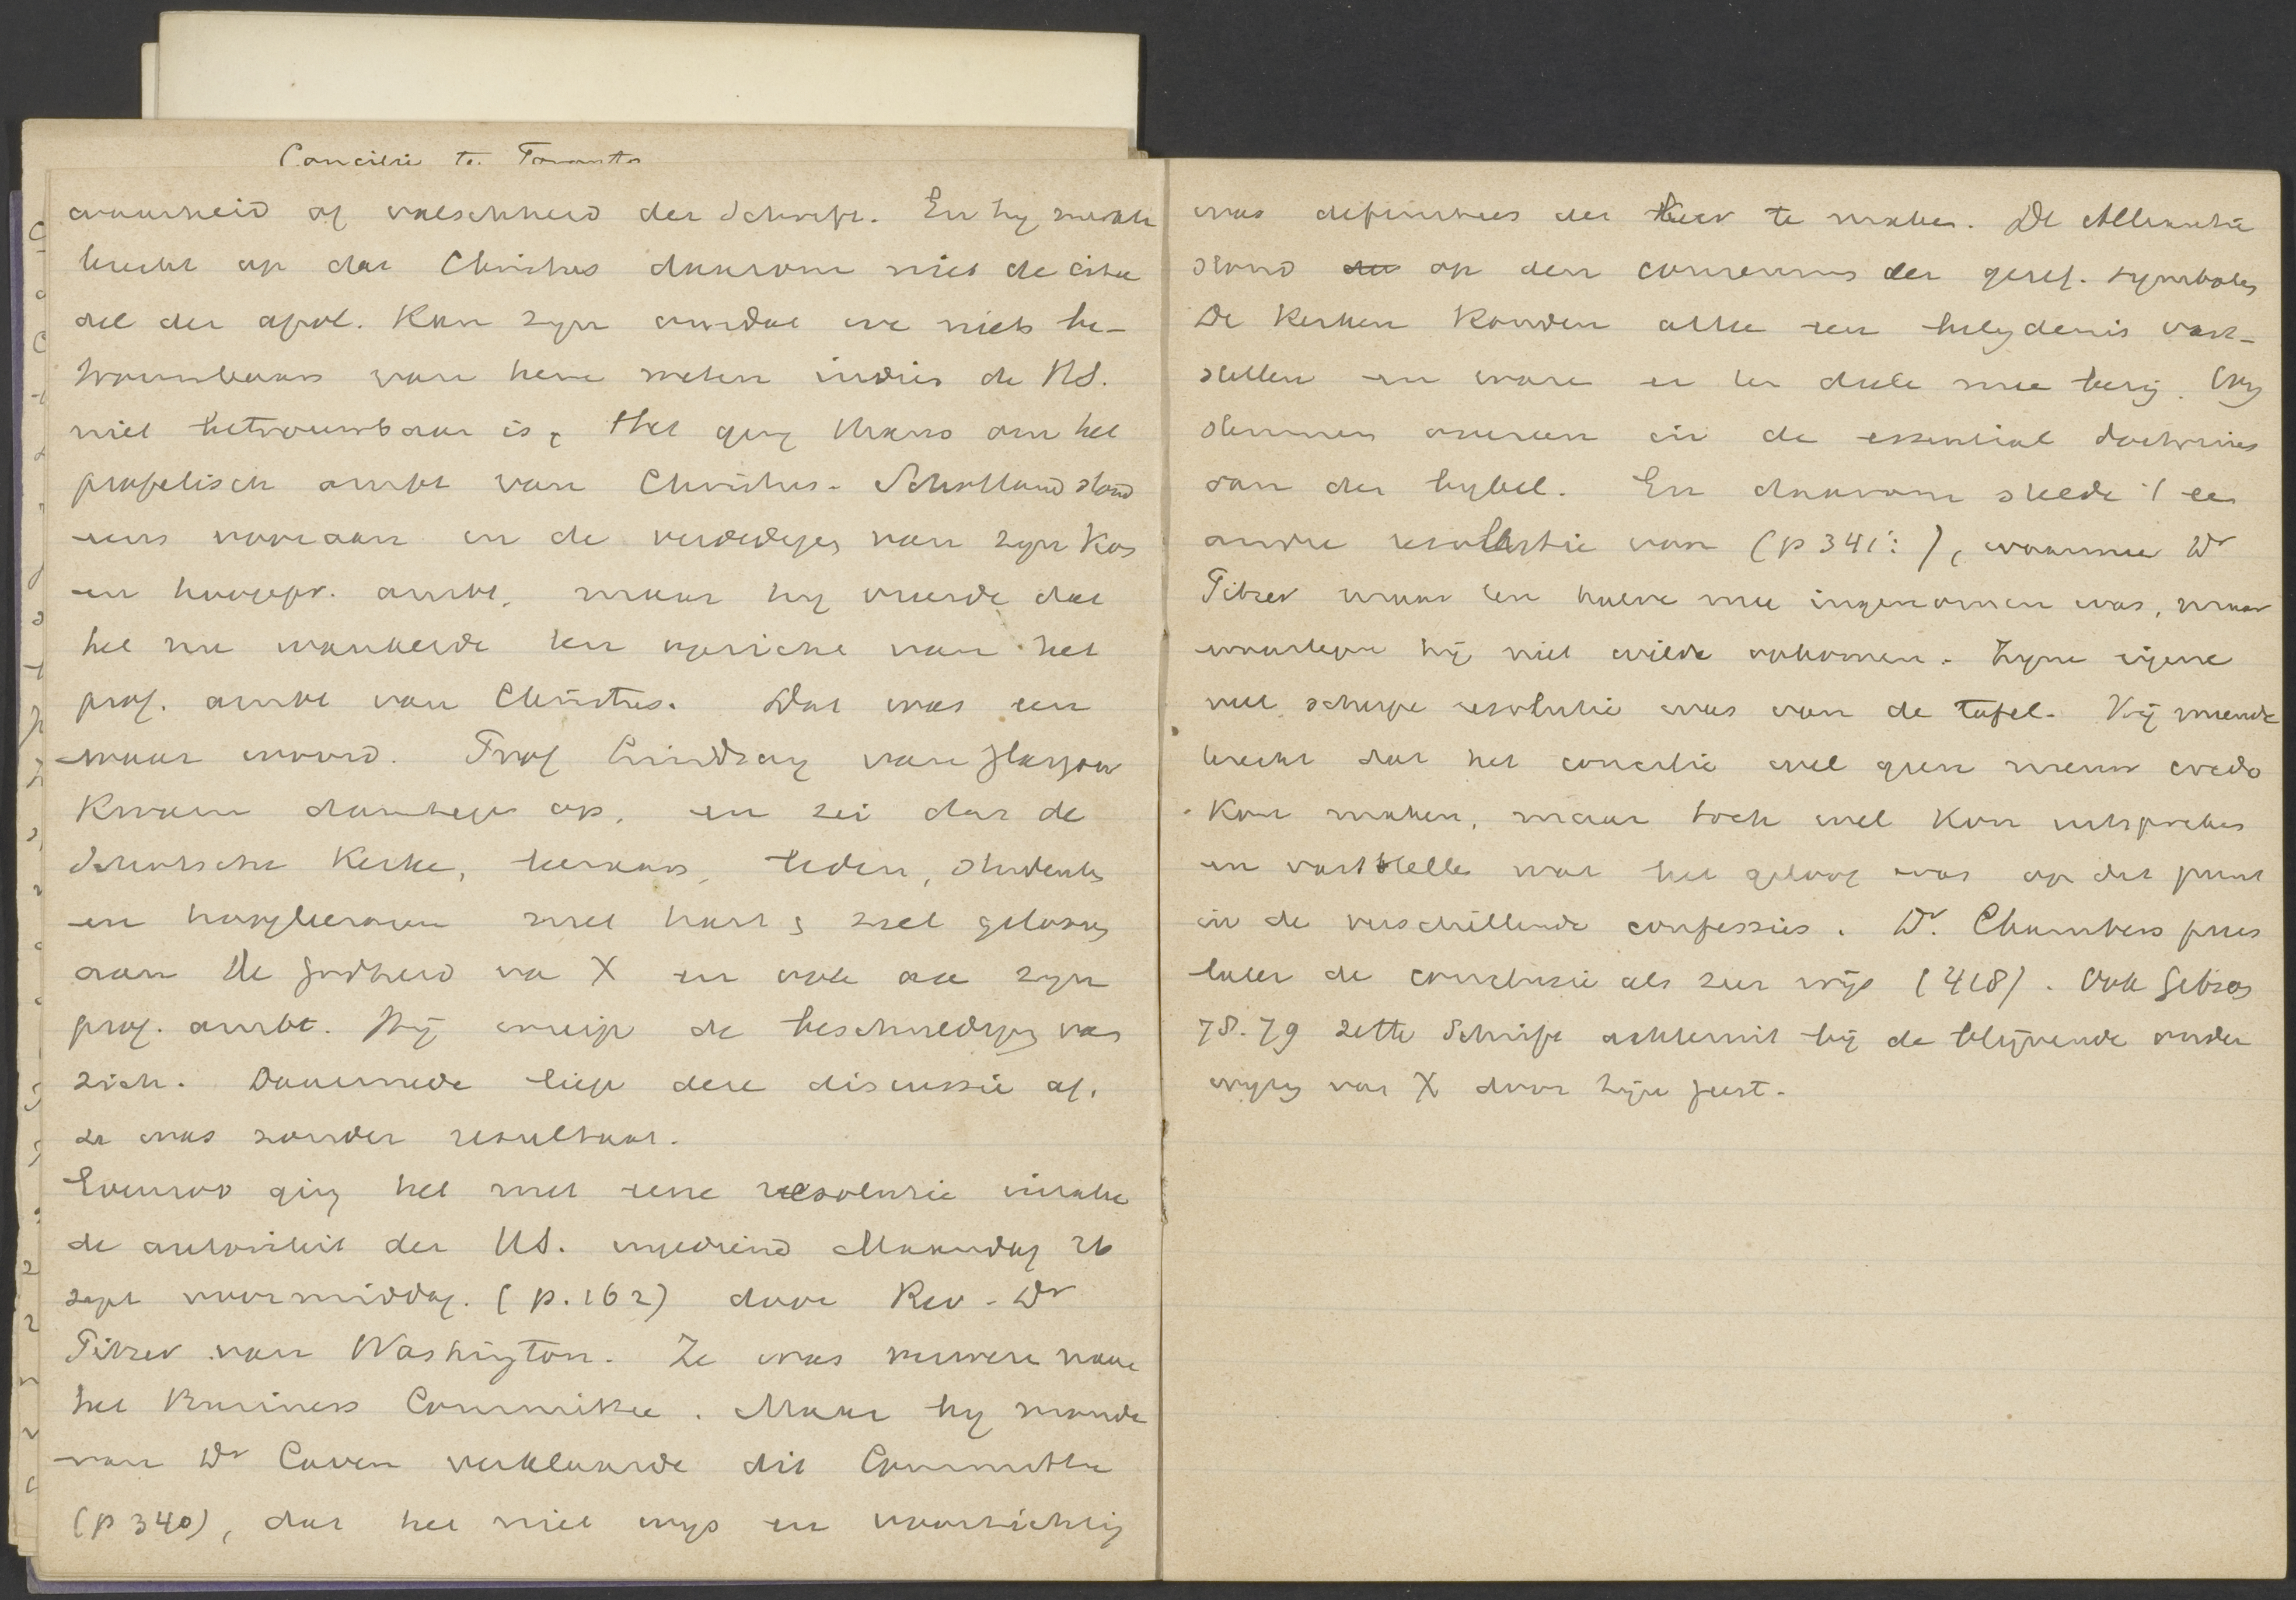 Concilie te Toronto
waarheid of valschheid der Schrift. En hij merkte
terecht op dat Christus daarom niet de cita
del der apol. kan zijn omdat we niets be-
trouwbaars van hem weten indien de HS.
niet betrouwbaar is. Het ging thans om het
profetisch ambt van Christus. Schotland stond
eens vooraan in de verdediging van zijn Kon
en hoogepr. ambt, maar hij vreesde dat
het nu wankelde ten opzichte van het
prof. ambt van Christus. Dat was een
waar woord. Prof Lindsay van Glasgow
kwam daartegen op, en zei dat de
Schotsche Kerke, leeraars, leden, studenten
en hoogleeraren met hart & ziel geloofden
aan de godheid van X en ook aan zijn
prof. ambt. Hij wierp de beschuldiging van
zich. Daarmede liep deze discussie af.
ze was zonder resultaat.
Evenzoo ging het met eene resolutie inzake
de autoriteit der HS. ingediend Maandag 26
sept voormiddag. (p. 162) door Rev. Dr
Pitzer van Washington. Ze was verwezen naar
het Business Committee. Maar bij monde
van Dr Caven verklaarde dit Committee
(p 340), dat het niet wijs en voorzichtig
was definities der leer te maken. De Alliantie
stond op den consensus der geref. symbolen
De Kerken konden alleen een belijdenis vast-
stellen en ware er ten deele mee bezig. Wij
stemmen overeen in de essential doctrines
van den bijbel. En daarom stelde 't een
andere resolutie voor (p 341:), waarmee Dr
Pitzer maar ten halve mee ingenomen was, maar
waartegen hij niet wilde opkomen. Zijne eigene
veel scherpe resolutie was van de tafel. Hij meende
terecht dat het concilie wel geen nieuw credo
kon maken, maar toch wel kon uitspreken
en vaststellen wat het geloof was op dit punt
in de verschillende confessies. Dr. Chambers prees
later de conclusie als zeer wijs (418). Ook Gibson
78.79 zette Schrift achteruit bij de blijvende onder
wijzing van X door zijn geest.